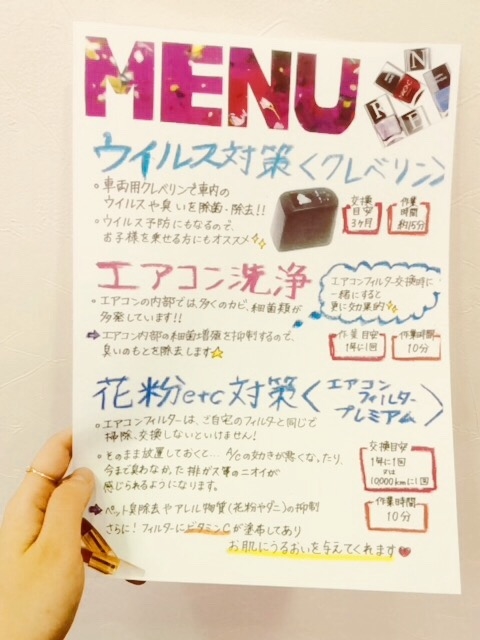 MENU
ウイルス対策〈クレベリン〉
・車両用クレベリンで車内の
ウイルスや臭いを除菌・除去!!
・ウイルス予防にもなるので、
お子様を乗せる方にもオススメ✨
交換
目安
3ヶ月
作業
時間
約15分
エアコン洗浄
・エアコンの内部では、多くのカビ、細菌類が
多発しています!!
➡エアコン内部の細菌増殖を抑制するので、
臭いのもとを除去します⭐
エアコンフィルター交換時に
一緒にすると
更に効果的✨
作業目安
1年に1回
作業時間
10分
花粉etc対策〈エアコン
フィルター
プレミアム〉
・エアコンフィルターは、ご自宅のフィルターと同じで
掃除、交換しないといけません!
・そのまま放置しておくと…
今まで臭わなかった排ガス等のニオイが
感じられるようになります。
➡ペット臭除去やアレル物質(花粉やダニ)の抑制
さらに!フィルターにビタミンCが塗布してあり
お肌にうるおいを与えてくれます♥
交換目安
1年に1回
又は
10,000kmに1回
作業時間
10分